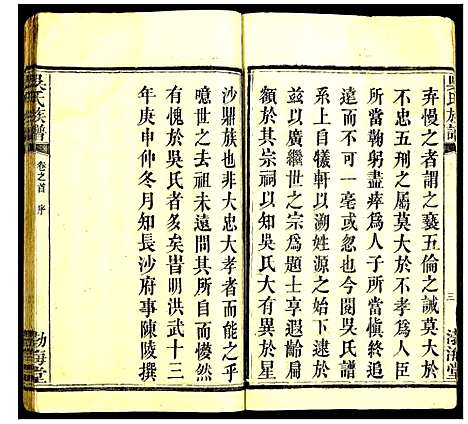 吳氏族譜
三
渤海堂
弃慢之者謂之褻五倫之誡莫大於
不忠五刑之屬莫大於不孝為人臣
所當鞠躬盡瘁為人子所當慎終追
遠而不可一毫忽者也今閱吳氏譜
系上自犧軒以溯姓源之始下逮於
茲以廣繼世之宗為題士享遐齡扁
額於其宗祠以知吳氏大有異於星
沙鼎族也非大忠大孝者而能之乎
噫世之去祖未遠問其所自而懜然
有愧於吳氏者多矣旹明洪武十三
年庚申仲冬月知長沙府事陳陵撰
吳氏族譜
卷之首
序
渤海堂